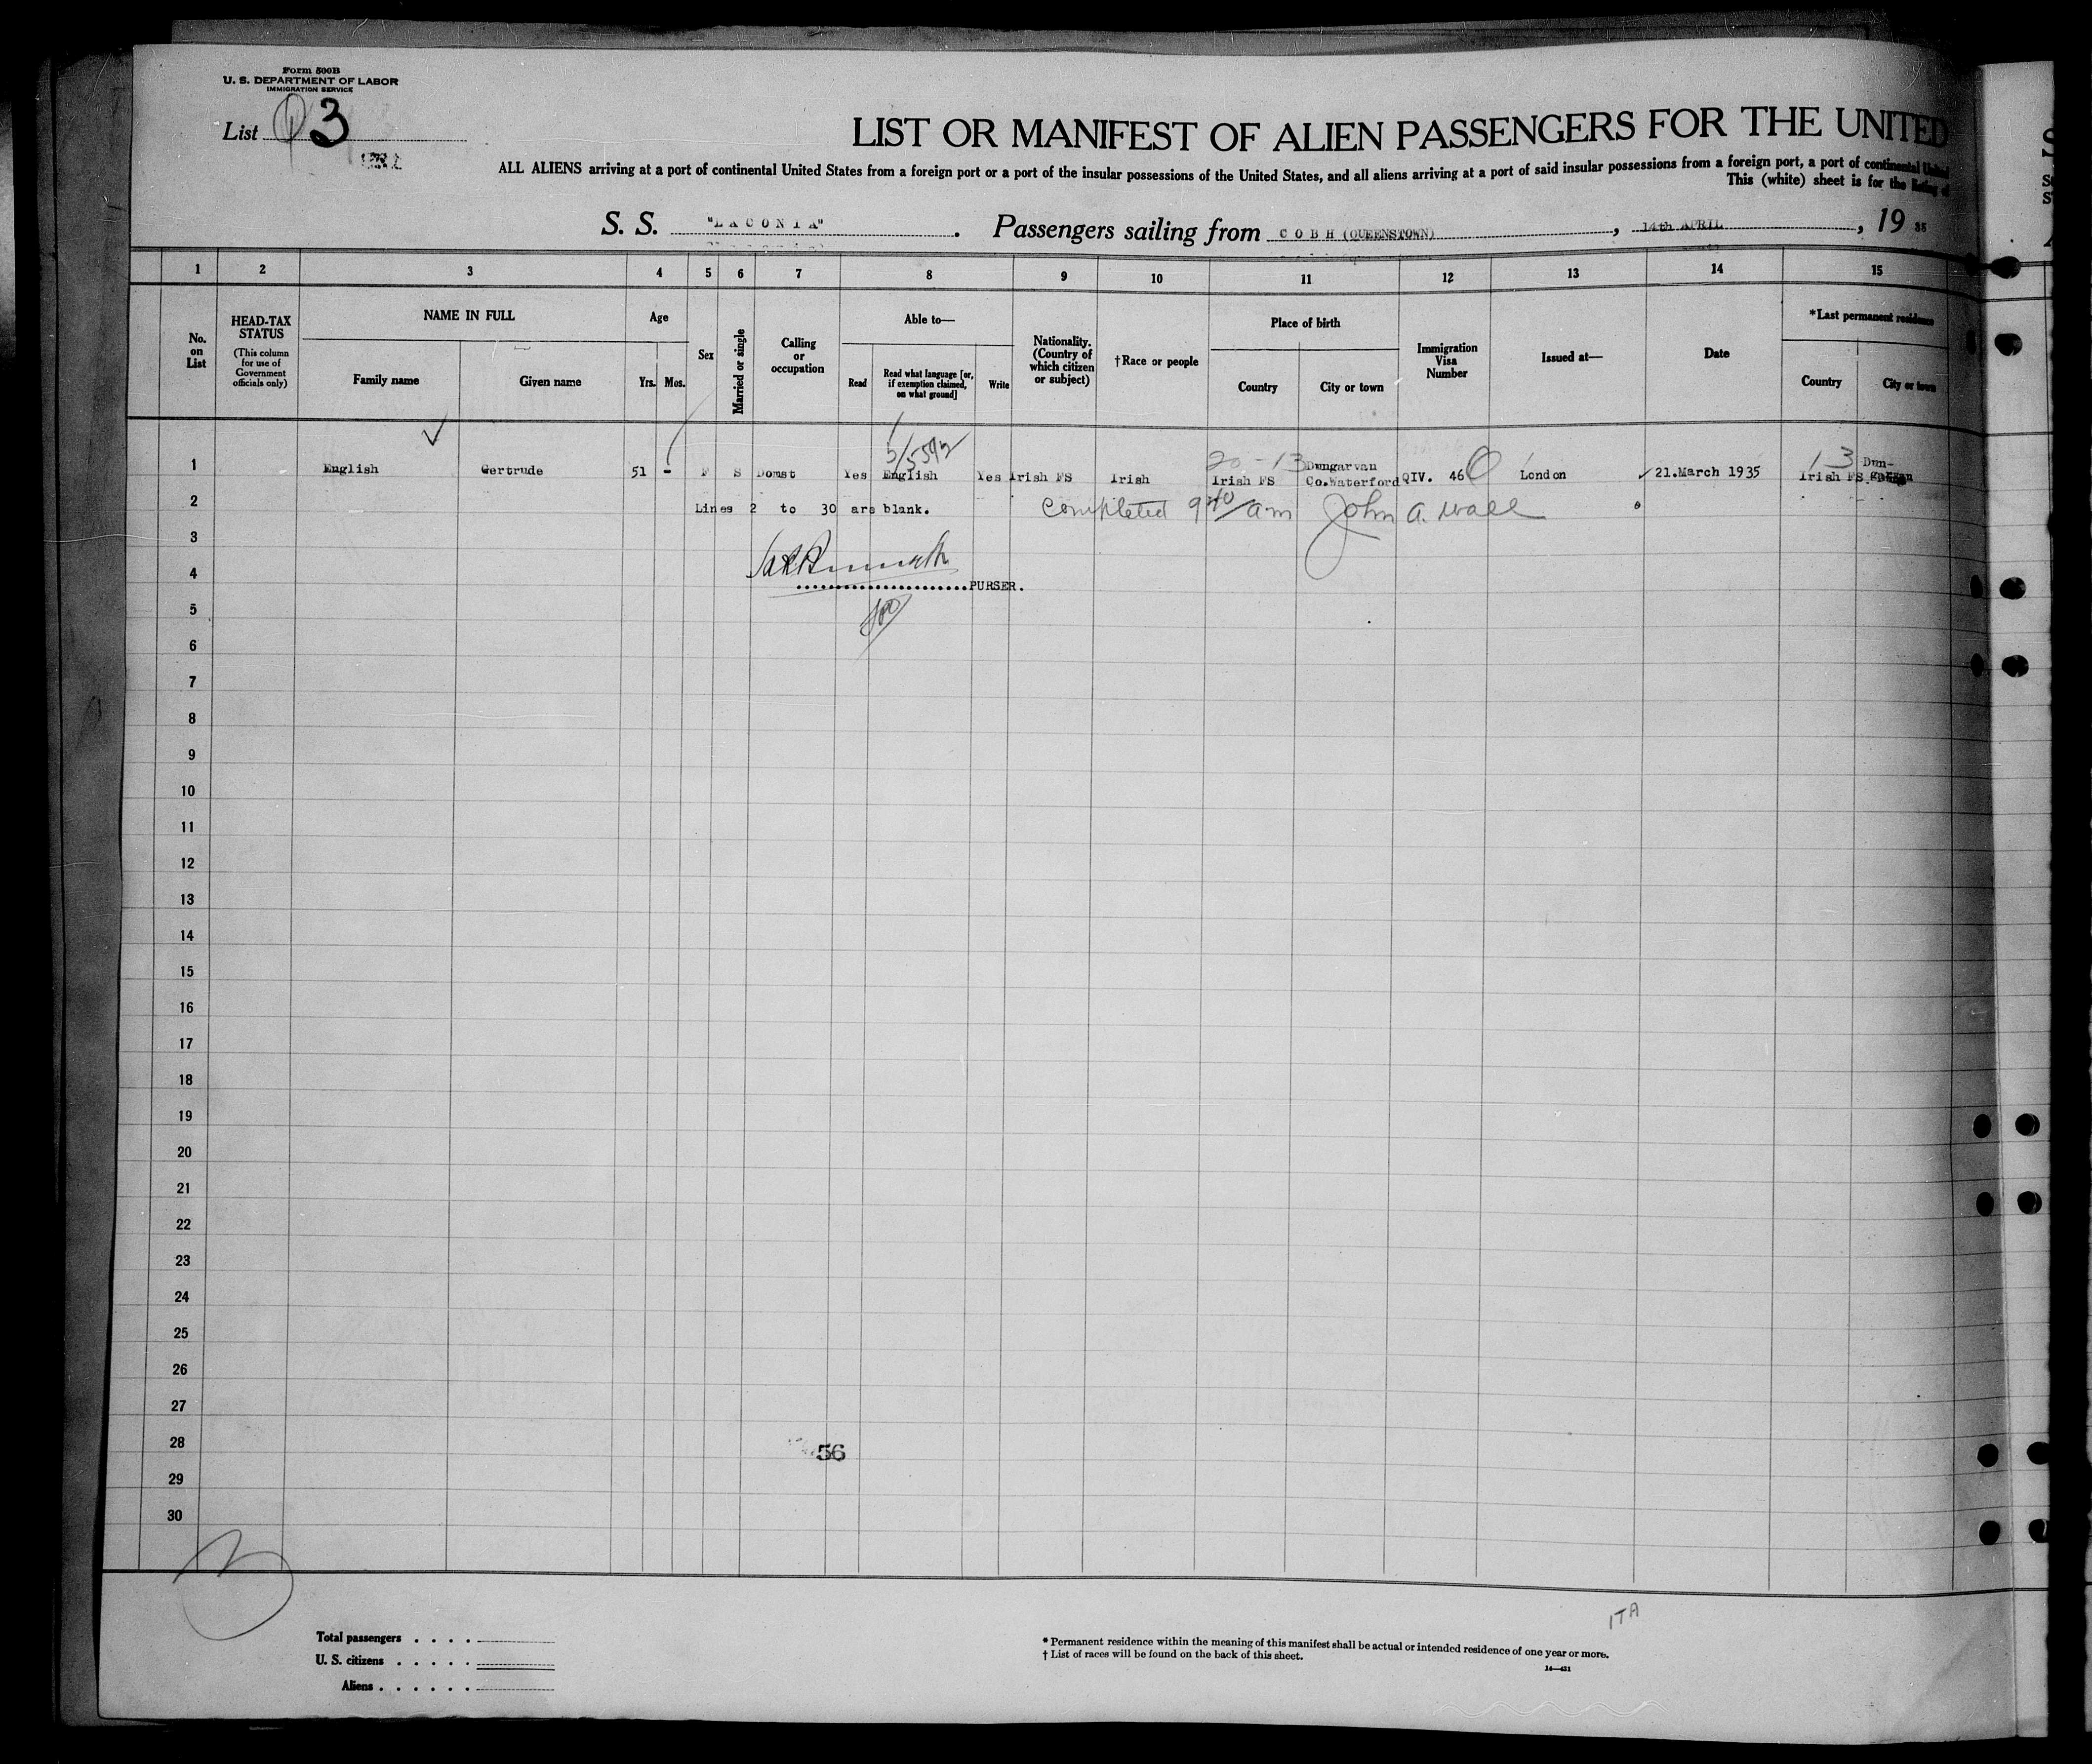 Form 500B
U. S. DEPARTMENT OF LABOR
IMMIGRATION SERVICE
List 3
LIST OR MANIFEST OF ALIEN PASSENGERS FOR THE UNITED
ALL ALIENS arriving at a port of continental United States from a foreign port or a port of the insular possessions of the United States, and all aliens arriving at a port of said insular possessions from a foreign port, a port of continental United
This (white) sheet is for the listing of
S. S. "LACONIA". Passengers sailing from COBH (QUEENSTOWN), 14th APRIL, 19 35
1 2 3 4 5 6 7 8 9 10 11 12 13 14 15
No. on List
HEAD-TAX STATUS
(This column for use of Government officials only)
NAME IN FULL
Family name Given name
Age
Yrs. Mos.
Sex
Married or single
Calling or occupation
Able to—
Read
Read what language [or, if exemption claimed, on what ground]
Write
Nationality. (Country of which citizen or subject)
†Race or people
Place of birth
Country City or town
Immigration Visa Number
Issued at—
Date
*Last permanent residence
Country City or town
2/5592
20-13
13
1 English Gertrude 51 - F S Domst Yes English Yes Irish FS Irish Irish FS Dungarvan Co.Waterford QIV. 46 London 21.March 1935 Irish FS Dun-garvan
2 Lines 2 to 30 are blank. Completed 9 40/am John A. Wall
3
4
PURSER.
5
6
7
8
9
10
11
12
13
14
15
16
17
18
19
20
21
22
23
24
25
26
27
28 56
29
30
ITA
Total passengers
U. S. citizens
Aliens
* Permanent residence within the meaning of this manifest shall be actual or intended residence of one year or more.
† List of races will be found on the back of this sheet.
14—431